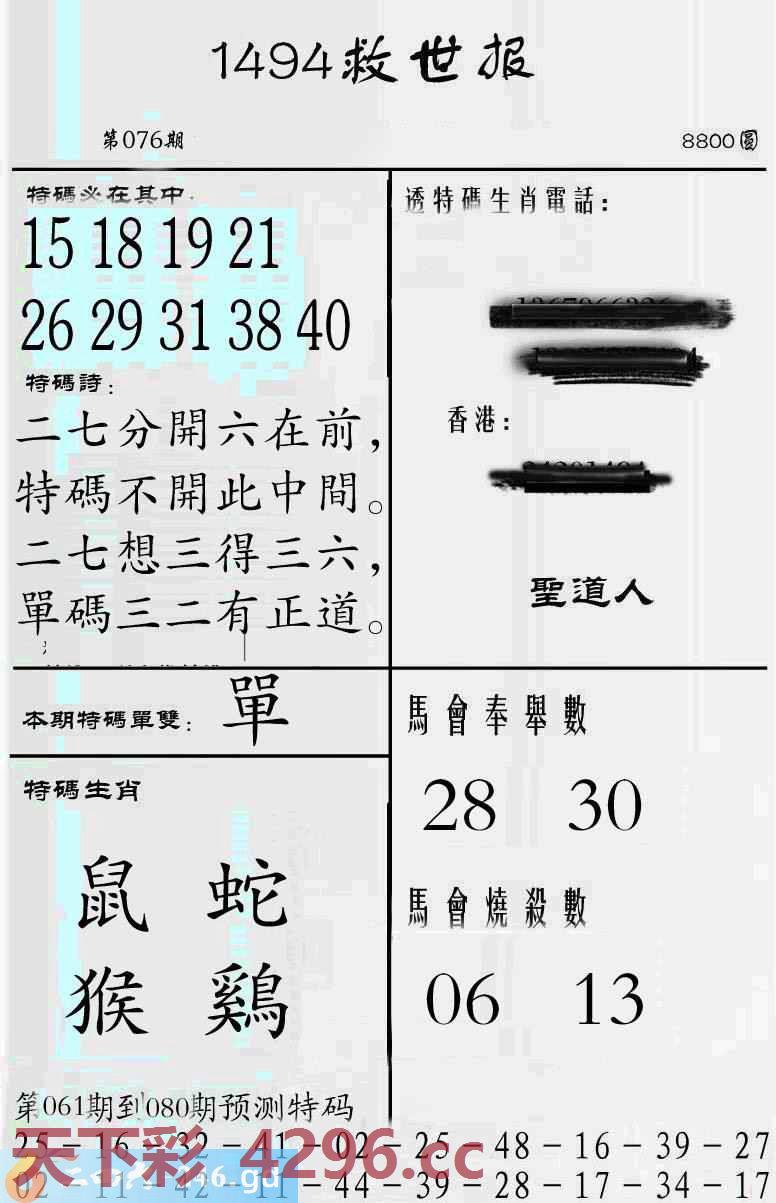 1494救世报
第076期
8800圓
特碼必在其中:
15 18 19 21
26 29 31 38 40
特碼詩:
二七分開六在前,
特碼不開此中間。
二七想三得三六,
單碼三二有正道。
透特碼生肖電話:
香港:
聖道人
本期特碼單雙: 單
特碼生肖
鼠 蛇
猴 鷄
馬會奉舉數
28 30
馬會燒殺數
06 13
第061期到080期预测特码
25-16-32-41-02-25-48-16-39-27
02-11-42-11-44-39-28-17-34-17
天下彩 4296.cc